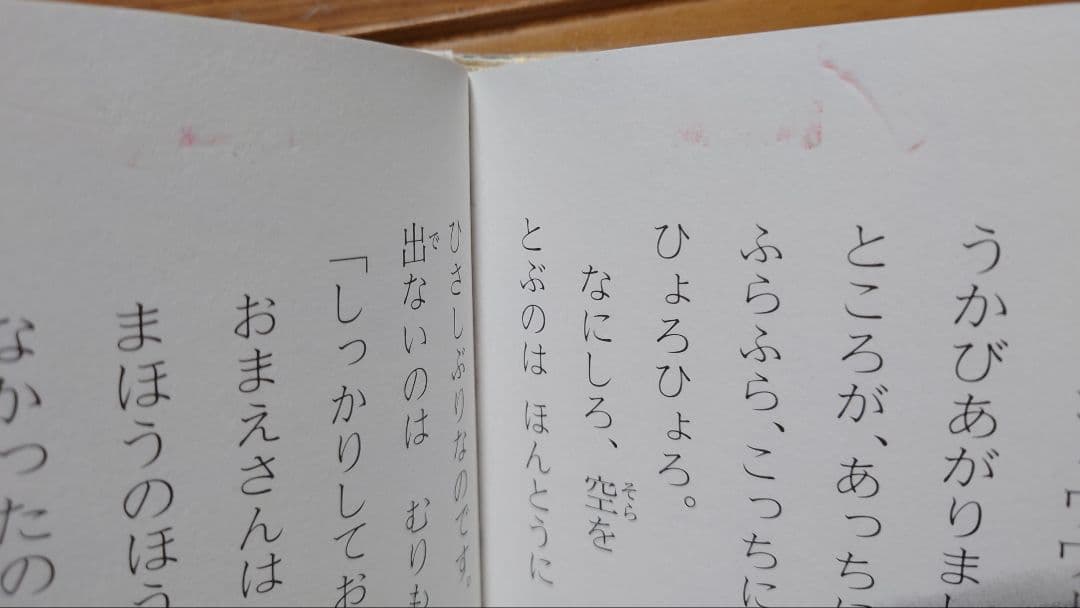 うかびあがりま
ところが、あっちに
ふらふら、こっちに
ひょろひょろ。
なにしろ、空を
そら
とぶのは ほんとうに
ひさしぶりなのです。
出ないのは むりも
で
「しっかりしてお
おまえさんは
まほうのほう
なかったの